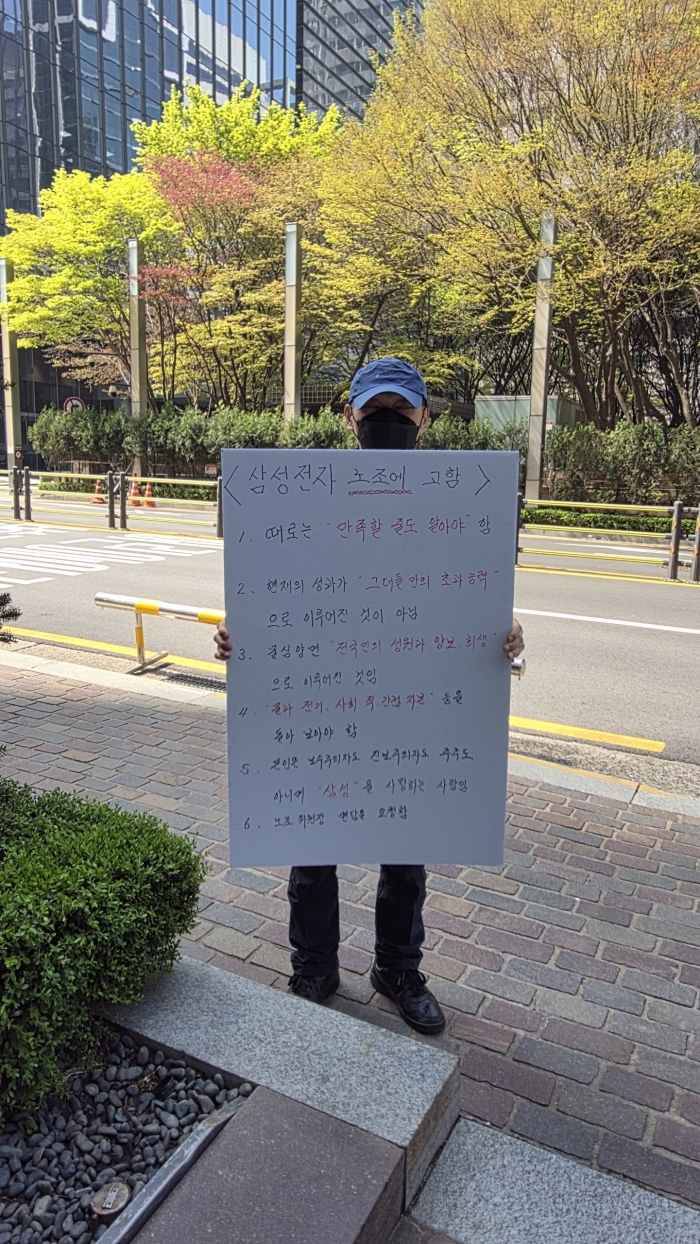 < 삼성전자 노조에 고함 >
1. 때로는 "만족할 줄도 알아야" 함
2. 현재의 성과가 "그대들만의 초과능력"
으로 이루어진 것이 아님
3. 음심양면 "전국민의 성원과 양보.희생"
으로 이루어진 것임
4. 전기, 사회 직.간접 자본" 등을
돌아 보아야 함
5. 본인은 보수주의자도 진보주의자도 주주도
아니며 "삼성"을 사랑하는 사람임
6. 노조 위원장 면담을 요청함